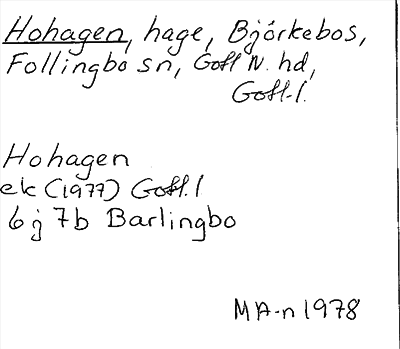 Hohagen, hage, Björkebos,
Follingbo sn, Gotl N. hd,
Gotl.l.
Hohagen
ek (1977) Gotl.l
6j 7b Barlingbo
MA-n 1978